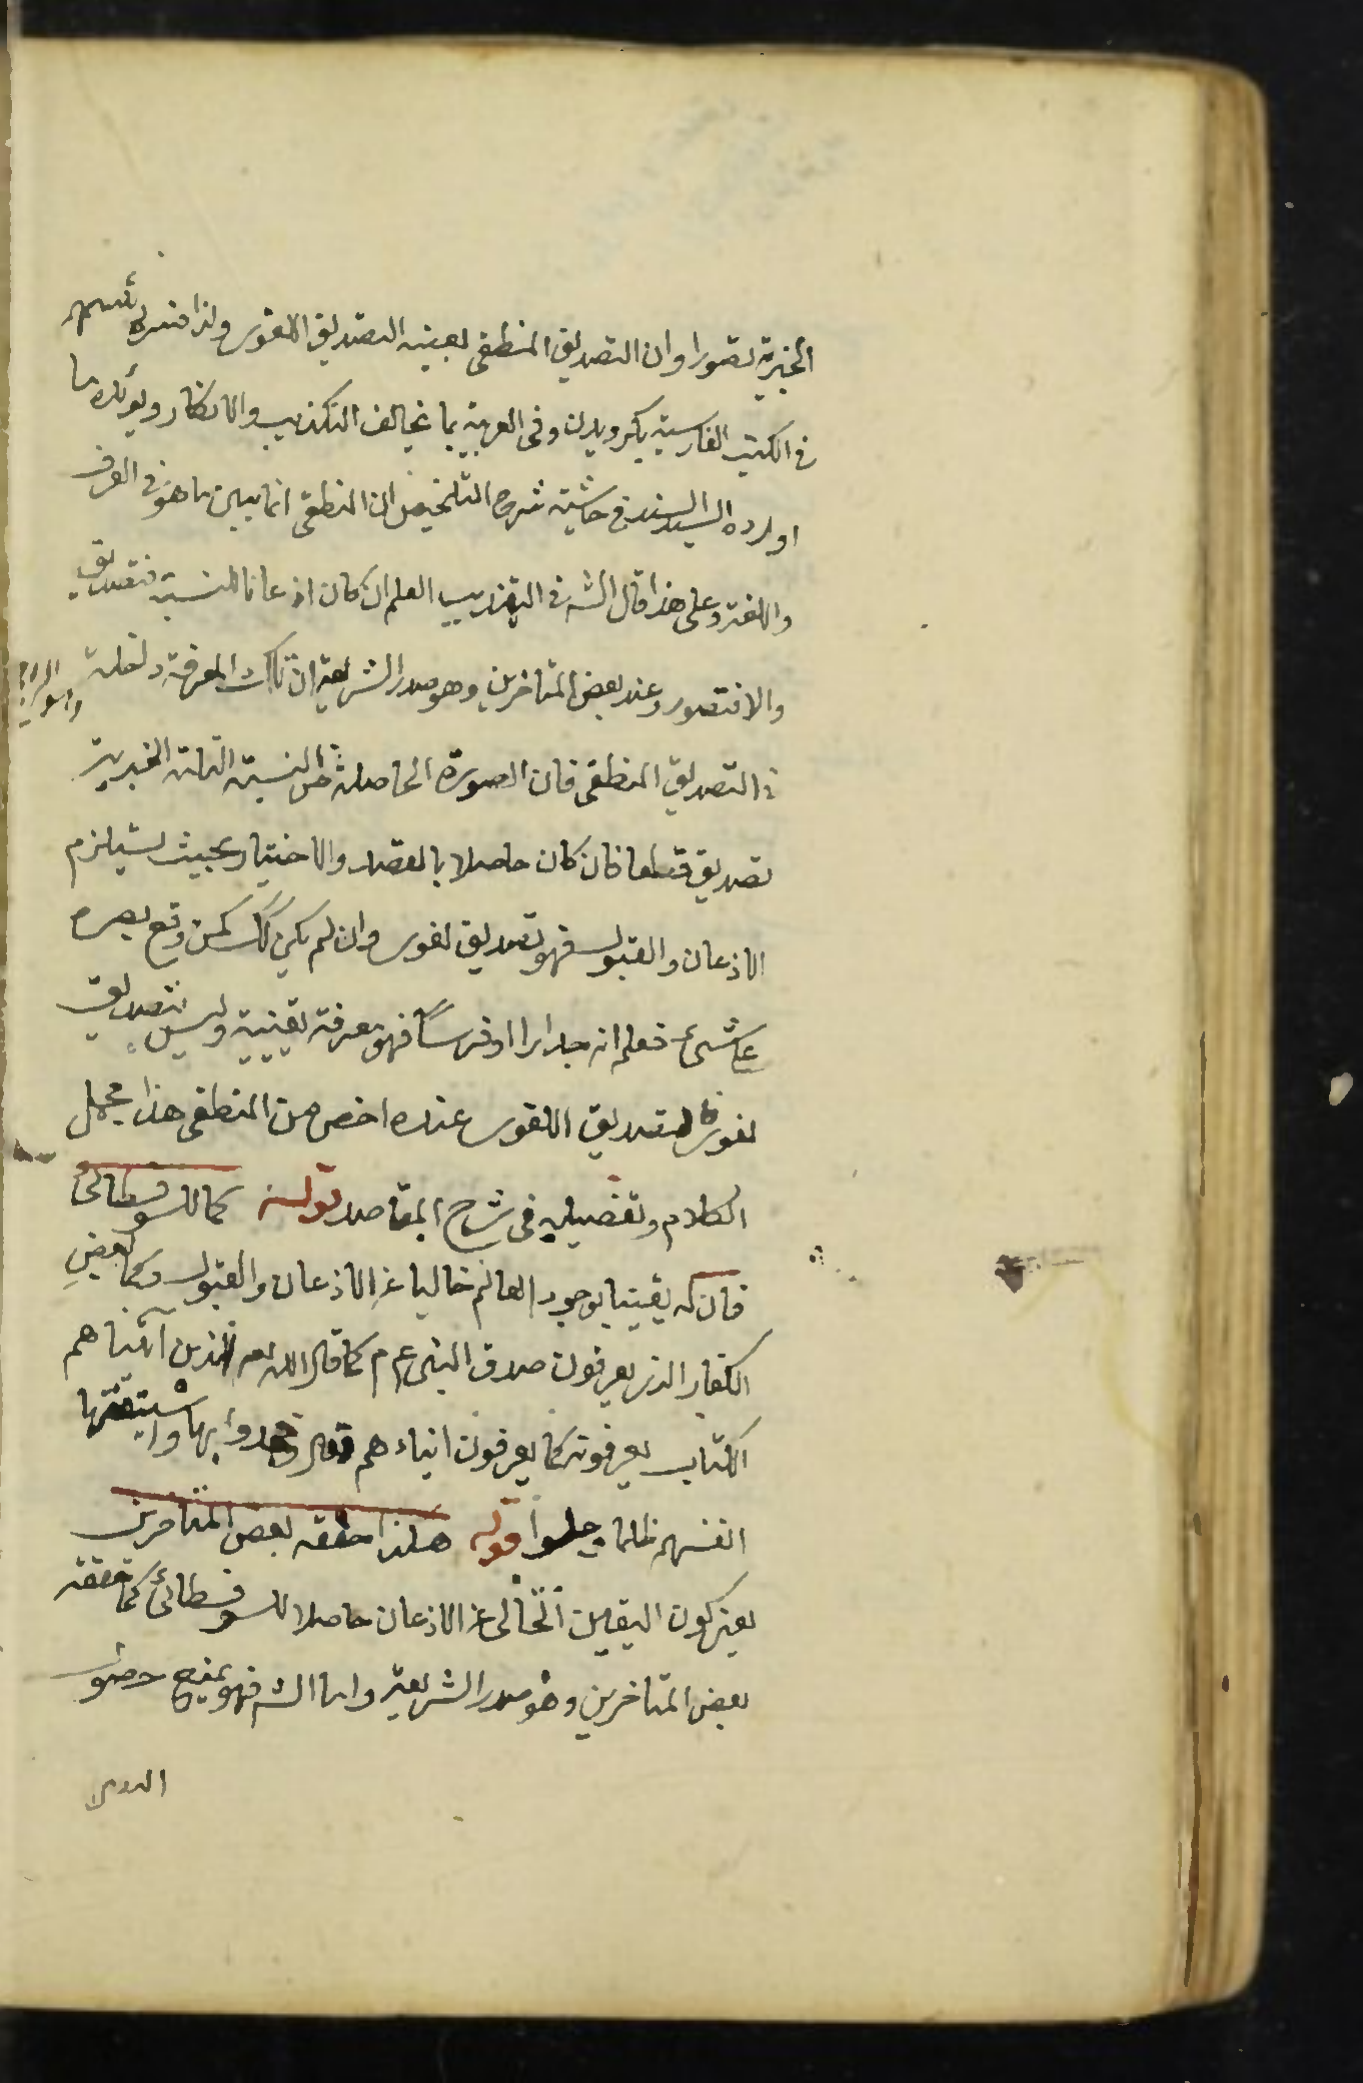 الخبرية تصورا وان التصديق المنطقى بعينه التصديق اللغوى ولذا فسره رئيسهم
فى الكتب الفارسية بكرويدن وفى العربية بما يخالف التكذيب والانكار ويؤيده ما
اورده السيد السند فى حاشية شرح التلخيص ان المنطقى انما يبين ما هو فى العرف
واللغة وعلى هذا قال الشه فى التهذيب العلم ان كان اذعانا للنسبة فتصديق
والا فتصور وعند بعض المتاخرين وهو صدر الشريعة ان تلك المعرفة داخلة
فى التصديق المنطقى فان الصورة الحاصلة من النسبة التامة الخبرية
تصديق قطعا فان كان حاصلا بالقصد والاختيار بحيث يستلزم
الاذعان والقبول فهو تصديق لغوى وان لم يكن كك كمن وقع بصره
على شىء فعلم انه جدار او فرسا فهو معرفة يقينية وليس بتصديق
لغوى فالتصديق اللغوى عنده اخص من المنطقى هذا مجمل
الكلام وتفصيله فى شرح المقاصد قوله كما للسوفسطائى
فان له يقينا بوجود العالم خاليا عن الاذعان والقبول وكما لبعض
الكفار الذين يعرفون صدق النبى عم م كما قال الله تعه الذين آتيناهم
الكتاب يعرفونه كما يعرفون ابناءهم وقال وجحدوا بها واستيقنتها
انفسهم ظلما وعلوا قوله هكذا حققه بعض المتاخرين
يعنى كون اليقين الخالى عن الاذعان حاصلا للسوفسطائى كما حققه
بعض المتاخرين وهو صدر الشريعة واما الشه فهو يمنع حصول